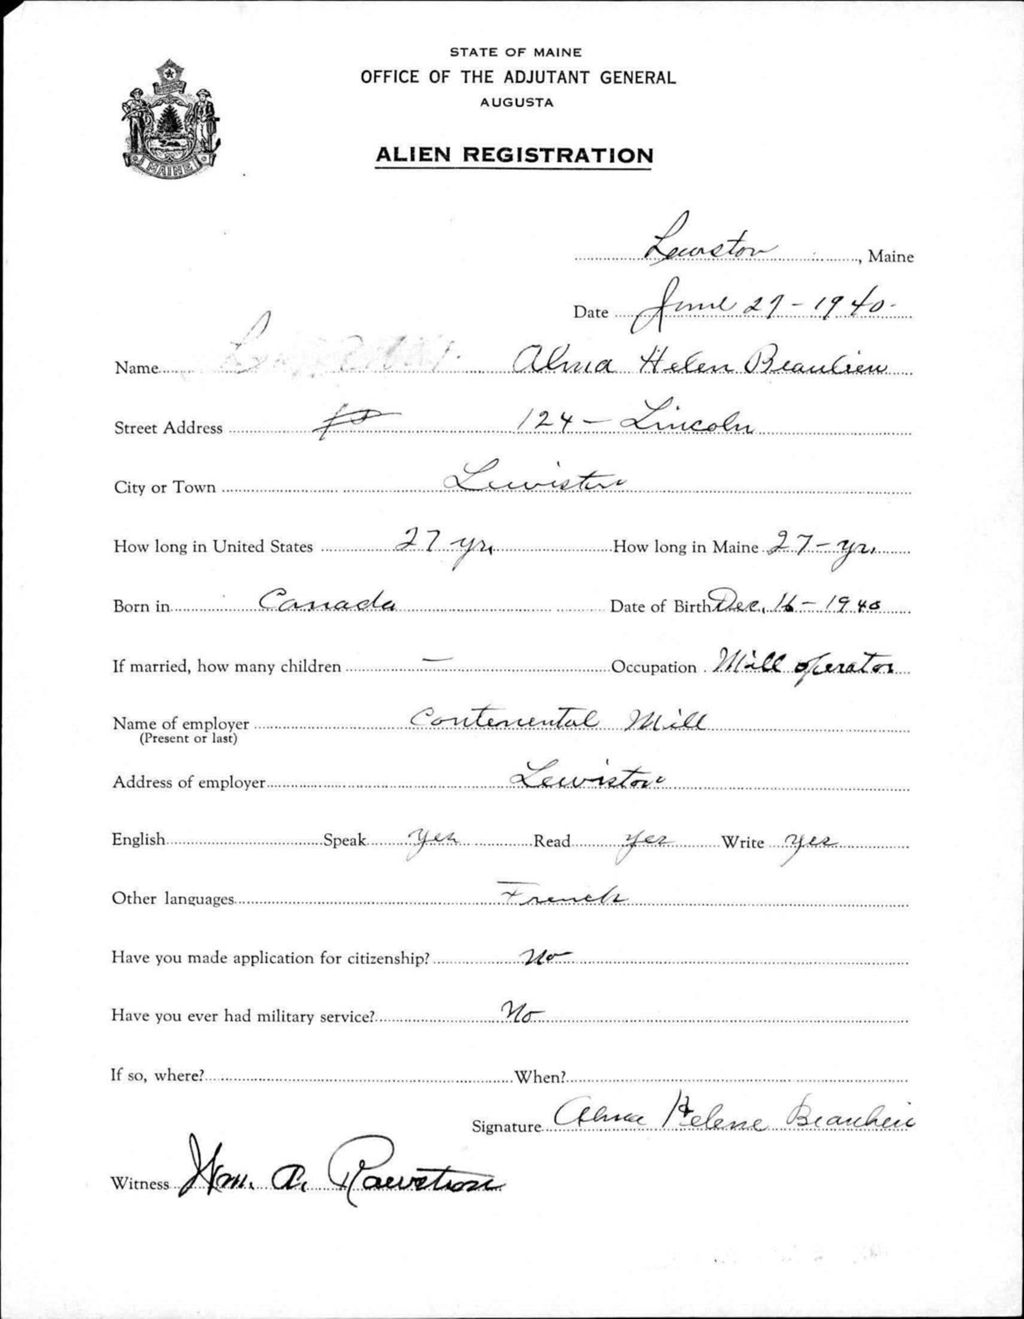 STATE OF MAINE
OFFICE OF THE ADJUTANT GENERAL
AUGUSTA
ALIEN REGISTRATION
MAINE
Lewiston, Maine
Date June 29 - 1940
Name Alma Helen Beaulieu
Street Address 124 - Lincoln
City or Town Lewiston
How long in United States 27 yrs How long in Maine 27 - yr.
Born in Canada Date of Birth Dec. 16 - 1940
If married, how many children — Occupation Mill operator
Name of employer Contenental Mill
(Present or last)
Address of employer Lewiston
English Speak yes Read yes Write yes
Other languages French
Have you made application for citizenship? No
Have you ever had military service? No
If so, where? When?
Signature Alma Helene Beaulieu
Witness Wm. A. Rawstron